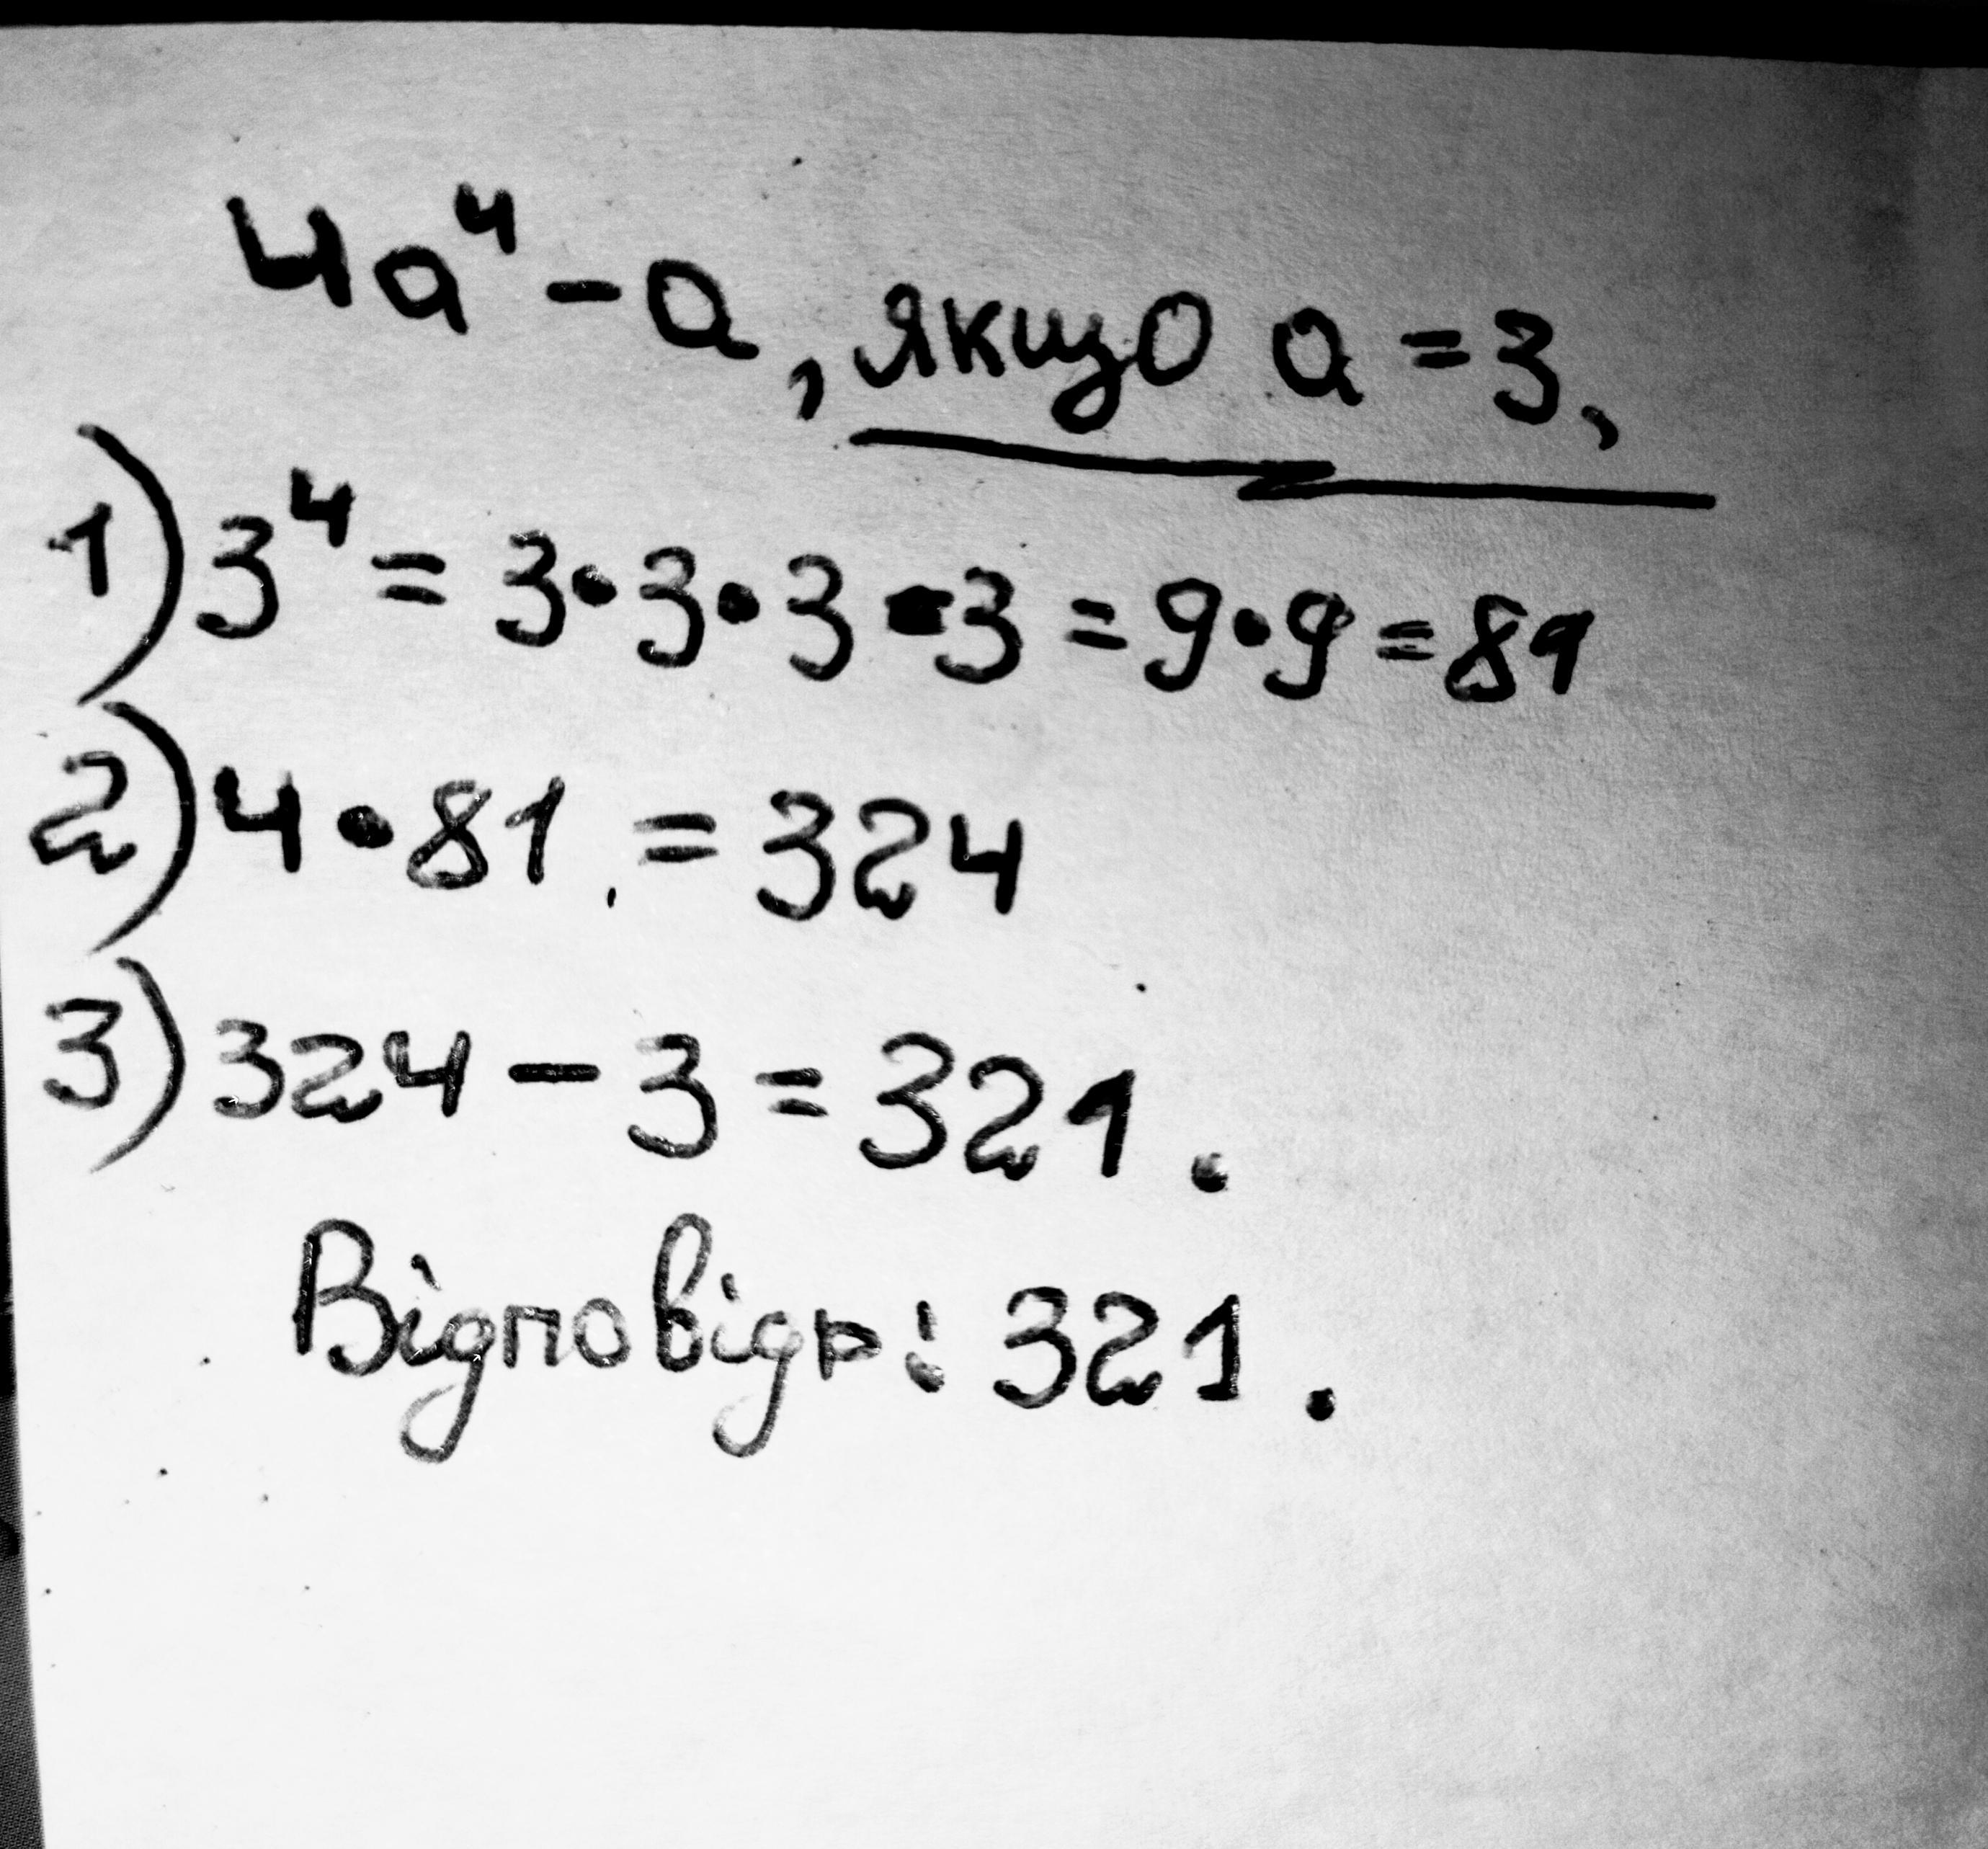 4a⁴ - a, якщо a = 3,
1) 3⁴ = 3·3·3·3 = 9·9 = 81
2) 4·81 = 324
3) 324 - 3 = 321.
Відповідь: 321.